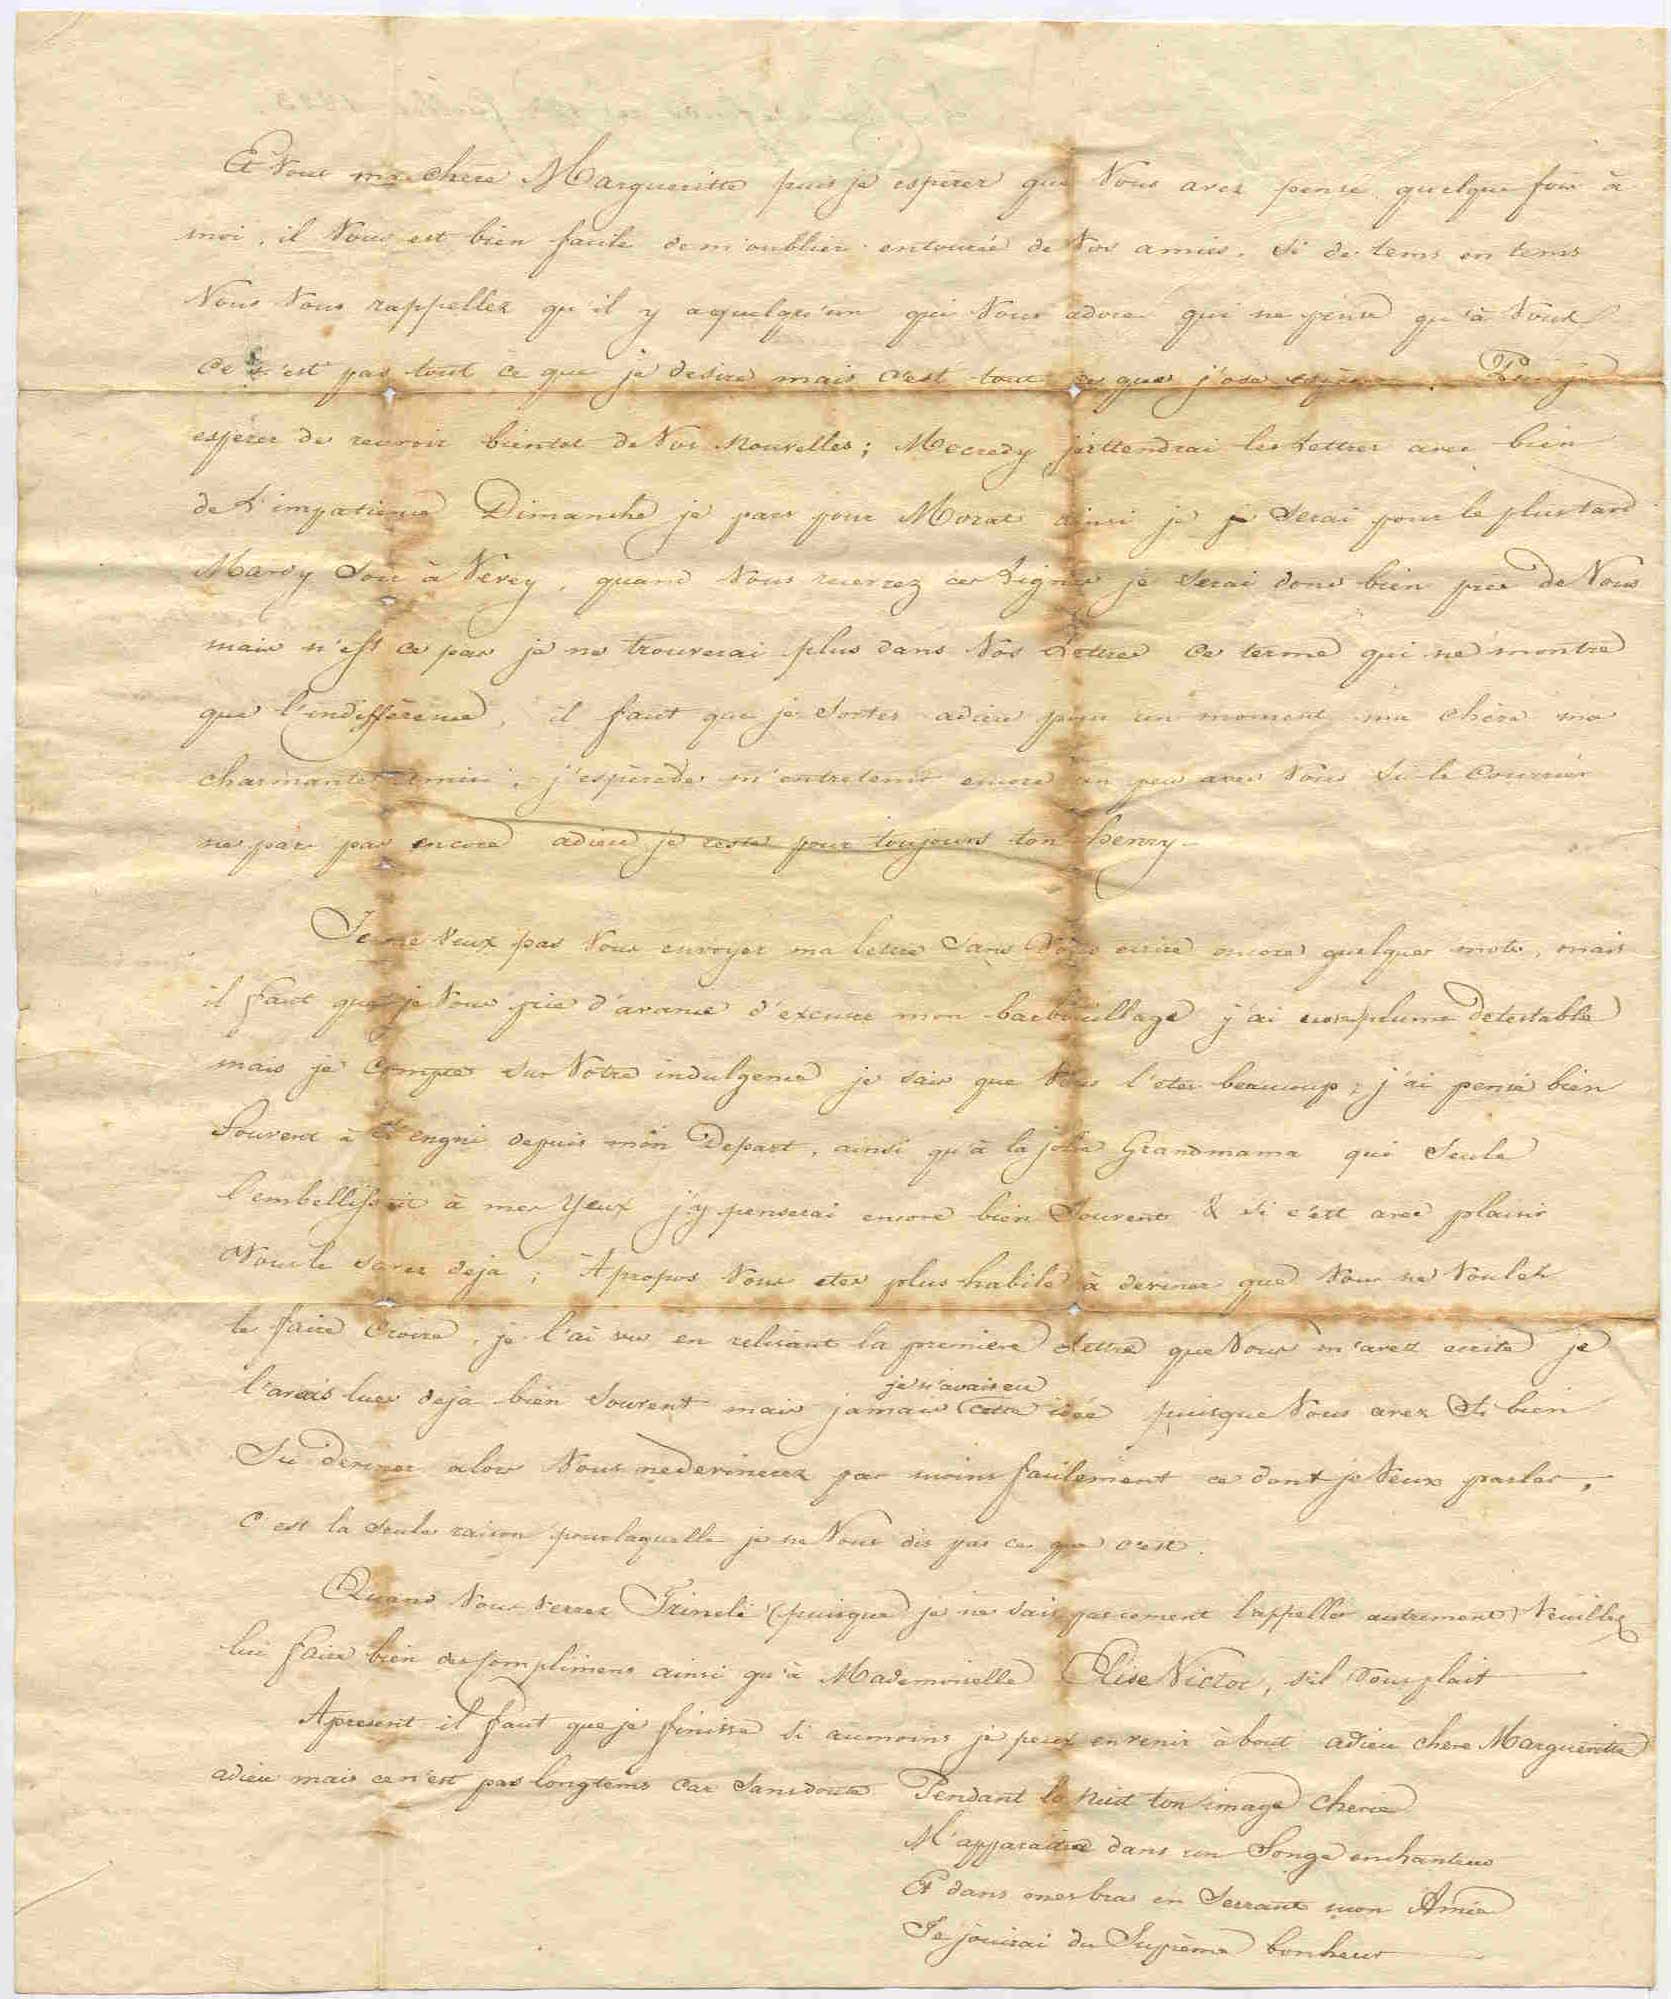 Et Vous ma chère Margueritte puis je espérer que Vous avez pensé quelque fois à
moi, il Vous est bien facile de m'oublier entourée de Vos amies. Si de tems en tems
Vous Vous rappellez qu'il y a quelqu'un qui Vous adore qui ne pense qu'à Vous
ce n'est pas tout ce que je desire mais c'est tout ce que j'ose espérer. Puis je
esperer de recevoir bientot de Vos Nouvelles; Mecredy j'attendrai les Lettres avec bien
de L'impatience Dimanche je pars pour Morat ainsi je serai pour le plus tard
Mardy Soir à Vevey, quand Vous recevrez ces Lignes je serai donc bien près de Vous
mais n'est ce pas je ne trouverai plus dans Vos Lettres ce terme qui ne montre
que l'indifférence, il faut que je sortes adieu pour un moment ma chère ma
charmante Amie, j'espère de m'entretenir encore un peu avec Vous si le Courrier
ne part pas encore adieu je reste pour toujours ton henry
Je ne veux pas Vous envoyer ma lettre sans Vous ecrire encore quelques mots, mais
il faut que je Vous prie d'avance d'excuser mon barbouillage j'ai une plume detestable
mais je compte sur Votre indulgence je sais que Vous l'etes beaucoup; j'ai pensé bien
Souvent à depuis mon Depart, ainsi qu'à la jolie Grandmama qui Seule
l'embellissoit à mes Yeux j'y penserai encore bien Souvent & si c'est avec plaisir
Vous le savez deja; Apropos Vous etes plus habile à deviner que Vous ne Voulez
le faire croire, je l'ai vu en relisant la premiere Lettre que Vous m'avez ecrite je
l'avais lue deja bien souvent mais jamais je n'avais eu cette idée puisque Vous avez Si bien
Su deviner alors Vous ne devinerez pas moins facilement ce dont je Veux parler,
C'est la Seule raison pour laquelle je ne Vous dis pas ce que c'est.
Quand Vous Verrez Trineli (puisque je ne sais pas coment l'appeller autrement) Veuillez
lui faire bien des Complimens ainsi qu'à Mademoiselle Elise Victor, s'il Vous plait
Apresent il faut que je finisse si aumoins je peux en venir à bout adieu chere Margueritte
adieu mais ce n'est pas longtems car Sans doute Pendant la Nuit ton image cherie
M'apparaitra dans un Songe enchanteur
Et dans mes bras en Serrant mon Amie
Je jouirai du Supreme bonheur